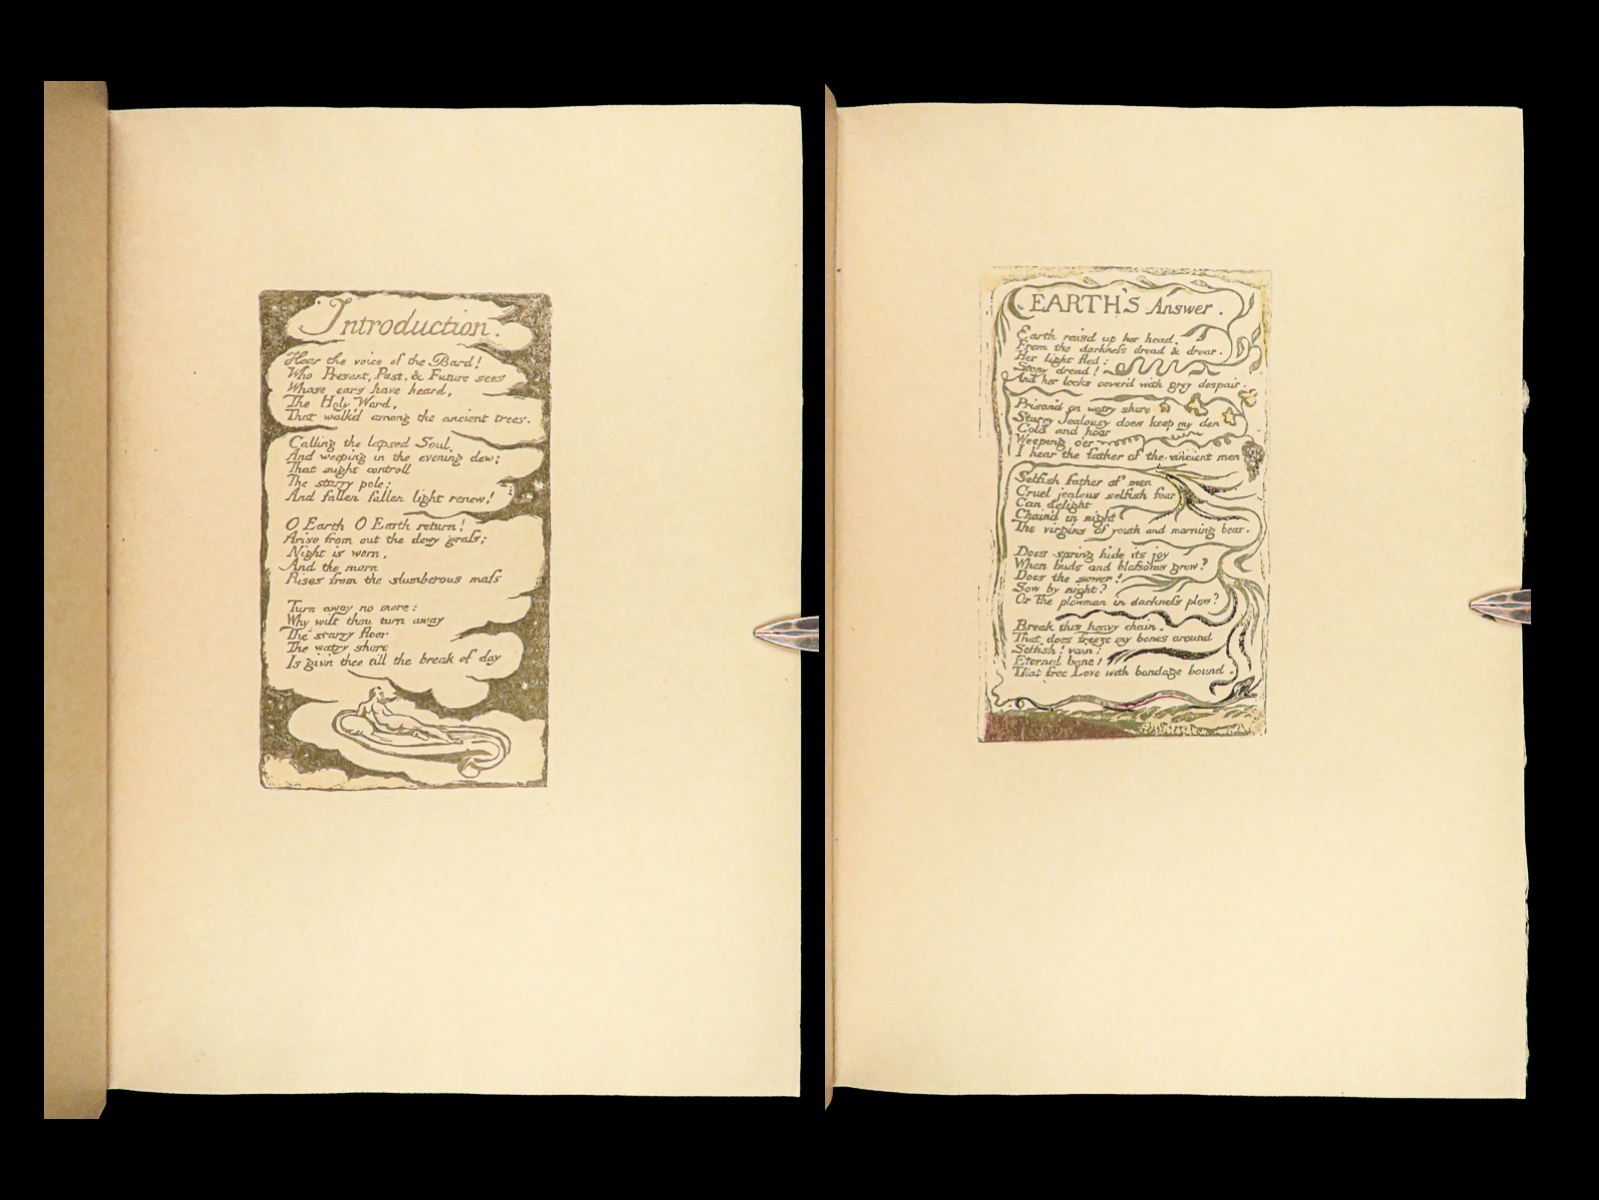 Introduction.
Hear the voice of the Bard!
Who Present, Past, & Future sees
Whose ears have heard,
The Holy Word,
That walk'd among the ancient trees.
Calling the lapsed Soul
And weeping in the evening dew;
That might controll
The starry pole;
And fallen fallen light renew!
O Earth O Earth return!
Arise from out the dewy grass;
Night is worn,
And the morn
Rises from the slumberous mass
Turn away no more:
Why wilt thou turn away
The starry floor
The watry shore
Is giv'n thee till the break of day
EARTH'S Answer.
Earth rais'd up her head,
From the darkness dread & drear.
Her light fled:
Stony dread!
And her locks cover'd with grey despair.
Prison'd on watry shore
Starry Jealousy does keep my den
Cold and hoar
Weeping o'er
I hear the father of the ancient men
Selfish father of men
Cruel jealous selfish fear
Can delight
Chain'd in night
The virgins of youth and morning bear.
Does spring hide its joy
When buds and blossoms grow?
Does the sower?
Sow by night?
Or the plowman in darkness plow?
Break this heavy chain,
That does freeze my bones around
Selfish! vain!
Eternal bane!
That free Love with bondage bound.